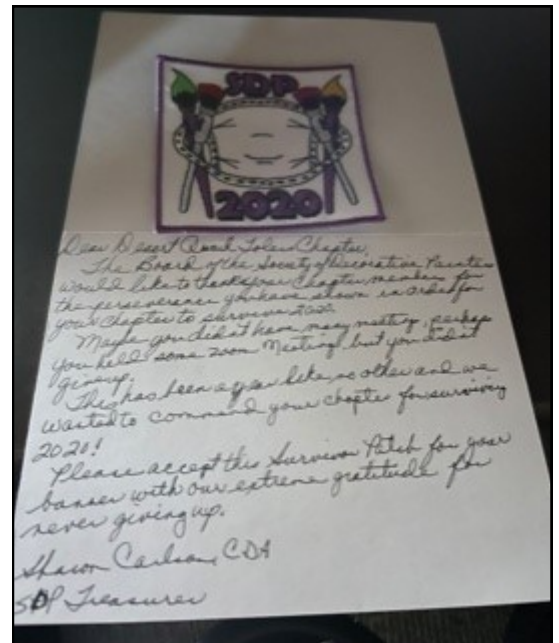 SDP
2020
Dear Desert Quail Tolers Chapter,
The Board of the Society of Decorative Painters
would like to thank your Chapter members for
the perseverance you have shown in order for
your chapter to survive 2020.
Maybe you didn't have many meetings, perhaps
you held some zoom Meetings but you didn't
give up.
This has been a year like no other and we
wanted to commend your chapter for surviving
2020!
Please accept this Survivor Patch for your
banner with our extreme gratitude for
never giving up.
Sharon Carlson, CDA
SDP Treasurer